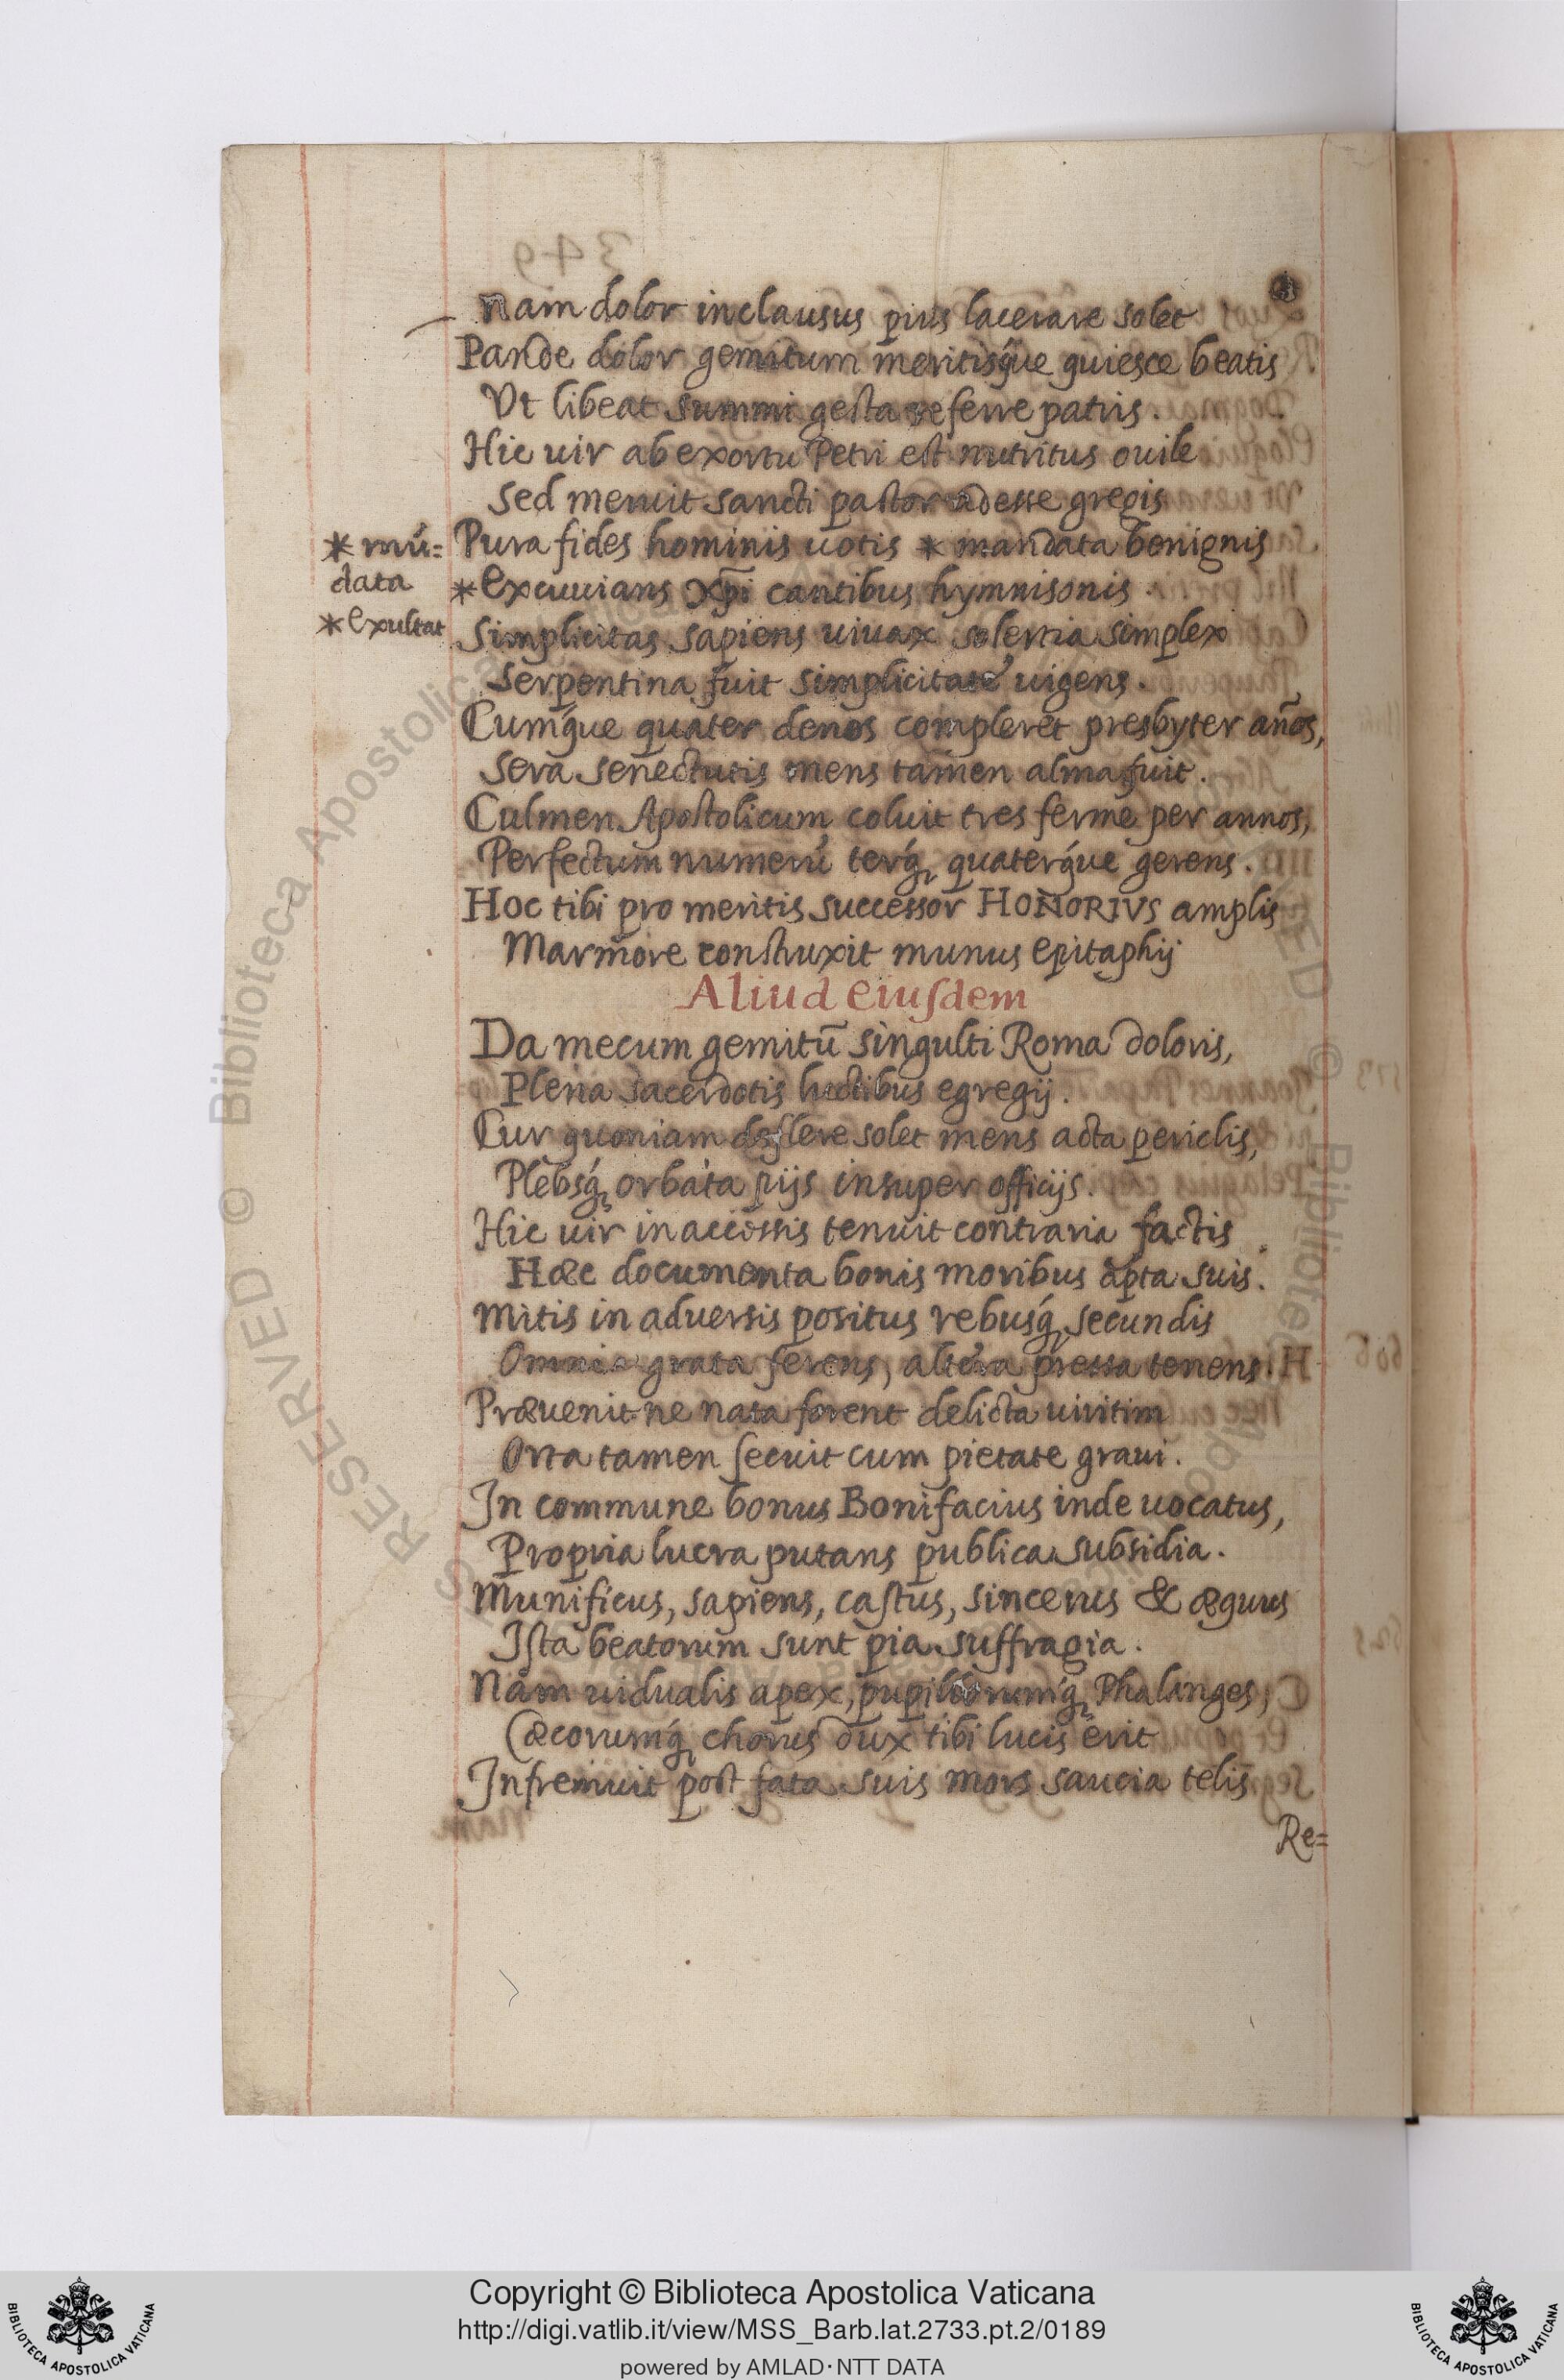 Nam dolor inclausus prius lacerare solet
Pande dolor gemitum meritisq́ue quiesce beatis
Vt libeat summi gesta referre patris.
Hic uir ab exortu Petri est nutritus ouile
Sed meruit sancti pastor adesse gregis
* mũ=
data
Pura fides hominis uotis * mandata benignis
* Excuuians Xp̃i cantibus hymnisonis.
* exultat
Simplicitas sapiens uiuax solertia simplex
Serpentina fuit simplicitate uigens.
Cumq́ue quater denos compleret presbyter años,
Sera senectutis mens tamen alma fuit.
Culmen Apostolicum coluit tres ferme per annos,
Perfectum numerũ terq́; quaterq́ue gerens.
Hoc tibi pro meritis successor HONORIVS amplis
Marmore construxit munus epitaphij
Aliud eiusdem
Da mecum gemitũ singulti Roma doloris,
Plena sacerdotis luctibus egregij.
Cur quoniam deflere solet mens acta periclis,
Plebsq́; orbata pijs insuper officijs.
Hic uir in accessis tenuit contraria factis
Hæc documenta bonis moribus apta suis.
Mitis in aduersis positus rebusq́; secundis
Omnia grata ferens, altera pressa tenens.
Præuenit ne nata forent delicta uiritim
Orta tamen secuit cum pietate graui.
In commune bonus Bonifacius inde uocatus,
Propria lucra putans publica subsidia.
Munificus, sapiens, castus, sincerus & æquus
Ista beatorum sunt pia suffragia.
Nam uidualis apex, pupillorumq́; Phalanges,
Cæcorumq́; chorus dux tibi lucis erit
Infremuit post fata suis mors saucia telis
Re=
RESERVED © Biblioteca Apostolica
Copyright © Biblioteca Apostolica Vaticana
http://digi.vatlib.it/view/MSS_Barb.lat.2733.pt.2/0189
powered by AMLAD·NTT DATA
BIBLIOTECA APOSTOLICA VATICANA
BIBLIOTECA APOSTOLICA VATICANA